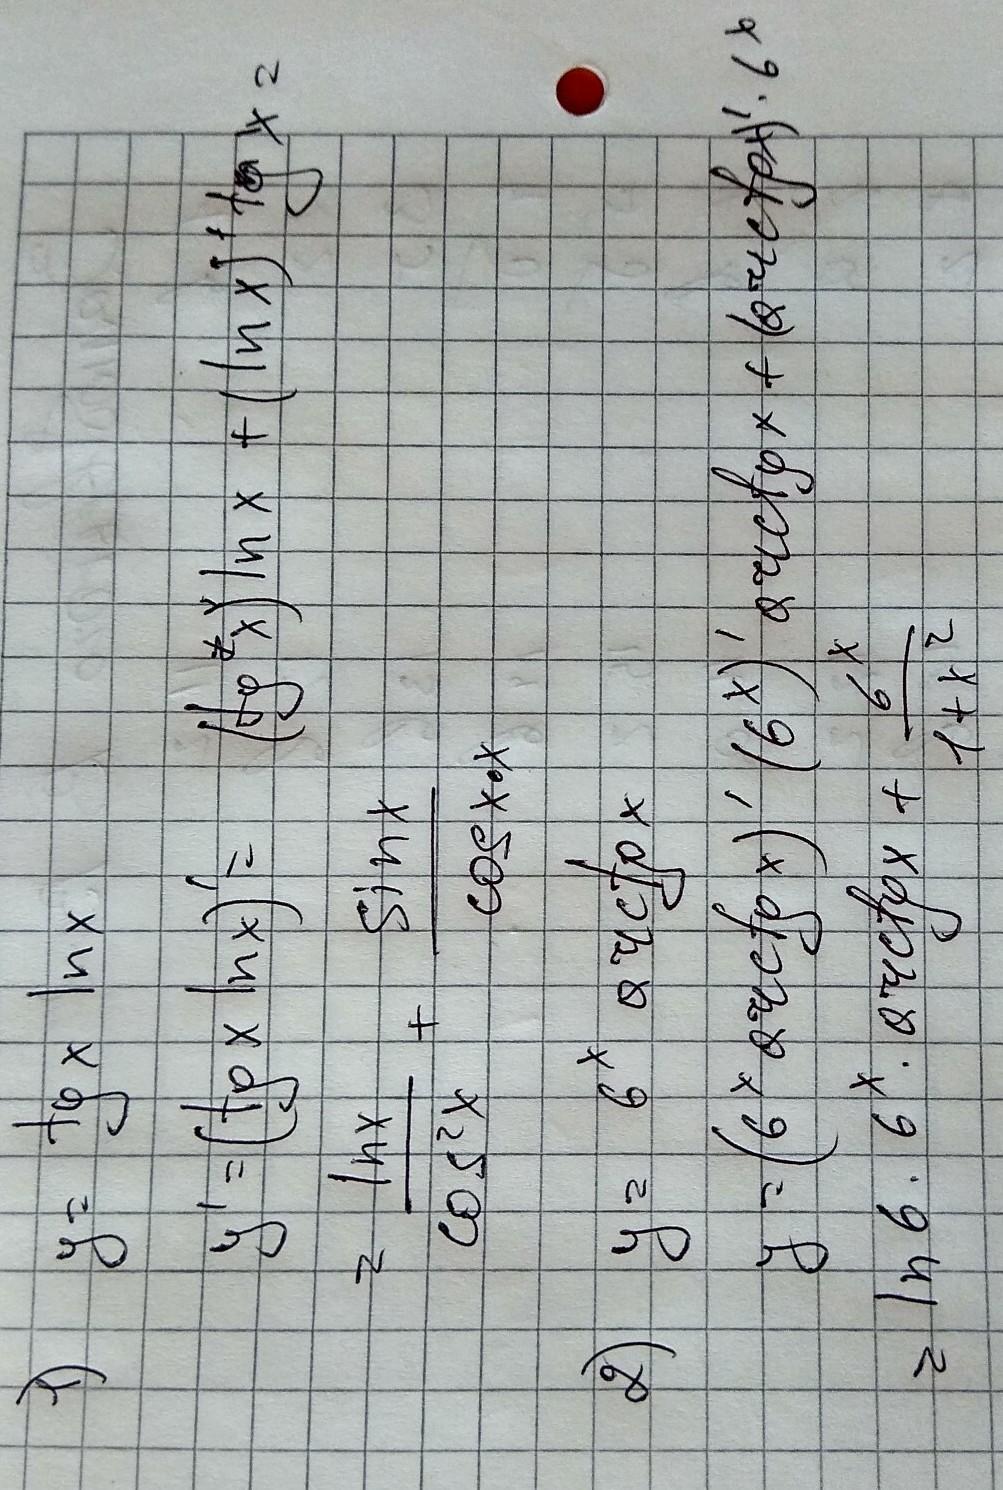 1) y = tg x ln x
y' = (tg x ln x)' = (tg x)' ln x + (ln x)' tg x =
= ln x / cos²x + sin x / cos x·x
2) y = 6^x arctg x
y = (6^x arctg x)' (6^x)' arctg x + (arctg x)' · 6^x
= ln 6 · 6^x · arctg x + 6^x / 1+x²